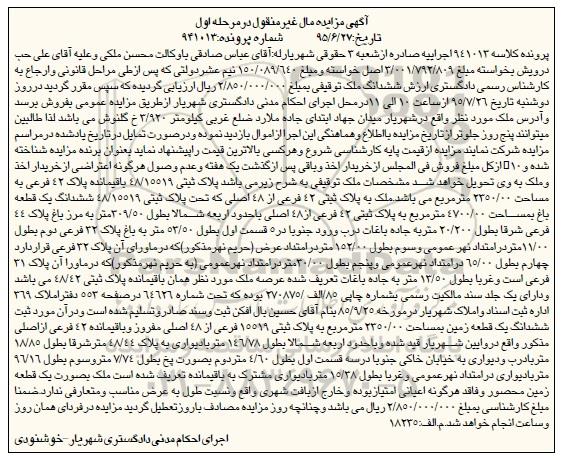 آگهی مزایده مال غیرمنقول در مرحله اول
تاریخ: ۹۵/۶/۲۷ شماره پرونده: ۹۴۱۰۱۳
پرونده کلاسه ۹۴۱۰۱۳ اجراییه صادره از شعبه ۳ حقوقی شهریار له: آقای عباس صادقی با وکالت محسن ملکی و علیه آقای علی حب
درویش بخواسته مبلغ ۳/۰۰۱/۷۹۲/۸۰۹ اصل خواسته و مبلغ ۱۵۰/۰۸۹/۶۴۰ نیم عشر دولتی که پس از طی مراحل قانونی و ارجاع به
کارشناس رسمی دادگستری ارزش ششدانگ ملک توقیفی بمبلغ ۲/۸۵۰/۰۰۰/۰۰۰ ریال ارزیابی گردیده که سپس مقرر گردید در روز
دوشنبه تاریخ ۹۵/۷/۲۶ از ساعت ۱۰ الی ۱۱ در محل اجرای احکام مدنی دادگستری شهریار از طریق مزایده عمومی بفروش برسد
و آدرس ملک مورد نظر واقع در شهریار میدان جهاد ابتدای جاده ملارد ضلع غربی کیلومتر ۲/۹۲۰ خ گلنوش می باشد لذا طالبین
میتوانند پنج روز جلوتر از تاریخ مزایده با اطلاع و هماهنگی این اجرا از اموال بازدید نموده و در صورت تمایل در تاریخ یاد شده در مراسم
مزایده شرکت نمایند مزایده از قیمت پایه کارشناسی شروع و هرکسی بالاترین قیمت را پیشنهاد نماید بعنوان برنده مزایده شناخته
شده و ۱۰٪ از کل مبلغ فروش فی المجلس از خریدار اخذ و باقی پس از گذشت یک هفته و عدم وصول هرگونه اعتراضی از خریدار اخذ
و ملک به وی تحویل خواهد شد مشخصات ملک توقیفی به شرح زیر می باشد پلاک ثبتی ۴۸/۱۵۵۱۹ باقیمانده پلاک ۴۲ فرعی به
مساحت ۲۳۵۰/۰۰ مترمربع می باشد ملک به پلاک ثبتی ۴۲ فرعی از ۴۸ اصلی که تحت پلاک ثبتی ۴۸/۱۵۵۱۹ ششدانگ یک قطعه
باغ بمساحت ۴۷۰۰/۰۰ مترمربع به پلاک ثبتی ۴۲ فرعی از ۴۸ اصلی با حدود اربعه شمالا بطول ۳۰۹/۵۰ متر به مرز باغ پلاک ۴۴
فرعی شرقا بطول ۲۰/۲۰۰ متر به جاده باغات درب ورود جنوبا در ۵ قسمت اول بطول ۵۲/۵۰ متر به باغ پلاک ۳۲ فرعی دوم بطول
۱۱/۰۰ متر در امتداد نهر عمومی و سوم بطول ۱۵۲/۰۰ متر در امتداد عرض (حریم نهر مذکور) که در ماورای آن پلاک ۳۲ فرعی قرار دارد
چهارم بطول ۶۵/۰۰ در امتداد نهر عمومی و پنجم بطول ۳۰/۰۰ متر در امتداد نهر عمومی (به حریم نهر مذکور) که در ماورا آن پلاک ۳۱
فرعی است و غربا بطول ۱۳/۵۰ متر به جاده باغات تعریف شده عرصه ملک مورد نظر همان باقیمانده پلاک ثبتی ۴۸/۴۲ می باشد
و دارای یک جلد سند مالکیت رسمی بشماره چاپی ۸۵/الف/۲۷۰۸۷۵ بوده که تحت شماره ۶۴۶۲۶ در صفحه ۵۵۳ دفتر املاک ۳۶۹
اداره ثبت اسناد و املاک شهریار مورخه ۸۵/۹/۲۵ بنام آقای حسین بال افکن ثبت و سند صادر و تسلیم شده است و در آن مورد ثبت
ششدانگ یک قطعه زمین بمساحت ۲۳۵۰/۰۰ مترمربع به پلاک ثبتی ۱۵۵۱۹ فرعی از ۴۸ اصلی مفروز و باقیمانده ۴۲ فرعی از اصلی
مذکور واقع در واوبین شهریار قید شده و با حدود اربعه شمالا بطول ۱۴۶/۷۸ متر بادیواری به پلاک ۴۸/۴۴ متر شرقا بطول ۱۸/۸۵
متر بادرب ودیوری به خیابان خاکی جنوبا در سه قسمت اول بطول ۴/۶۰ متر دوم بصورت پخ بطول ۷/۷۴ متر و سوم بطول ۹۶/۱۶
متر بادیواری در امتداد نهر عمومی و غربا بطول ۱۵/۳۸ متر بادیواری مشترک به باقیمانده تعریف شده است ملک بصورت یک قطعه
زمین محصور و فاقد هرگونه اعیانی امتیاز بوده و خارج از بافت شهری واقع و نسبت طول به عرض مناسب و متعارفی ندارد. ضمنا
مبلغ کارشناسی بمبلغ ۲/۸۵۰/۰۰۰/۰۰۰ ریال می باشد و چنانچه روز مزایده مصادف با روز تعطیل گردید مزایده در فردای همان روز
و ساعت انجام خواهد شد. م. الف: ۱۸۲۳۵
اجرای احکام مدنی دادگستری شهریار - خوشنودی